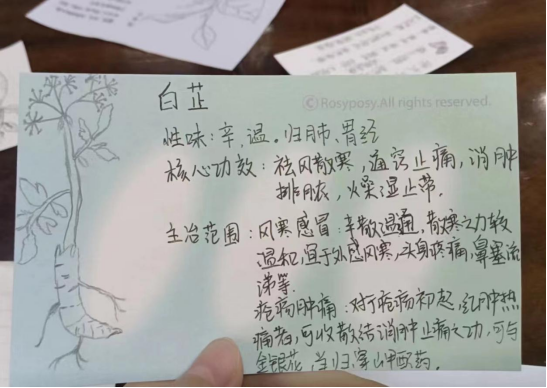 白芷
© Rosyposy.All rights reserved.
性味：辛、温。归肺、胃经
核心功效：祛风散寒，通窍止痛，消肿
排脓，燥湿止带.
主治范围：风寒感冒：辛散温通，散寒之力较
温和，宜于外感风寒，头身疼痛，鼻塞流
涕等.
疮疡肿痛：对于疮疡初起，红肿热
痛者，可收散结消肿止痛之功，可与
金银花，当归，穿山甲配药.